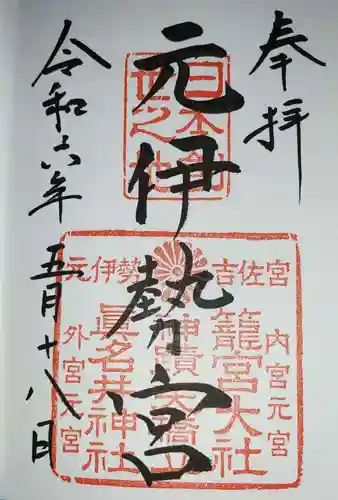 奉拝
元伊勢宮
令和六年
五月十八日
日本創
世之地
吉佐宮
元伊勢
内宮元宮
籠宮大社
眞名井神社
外宮元宮